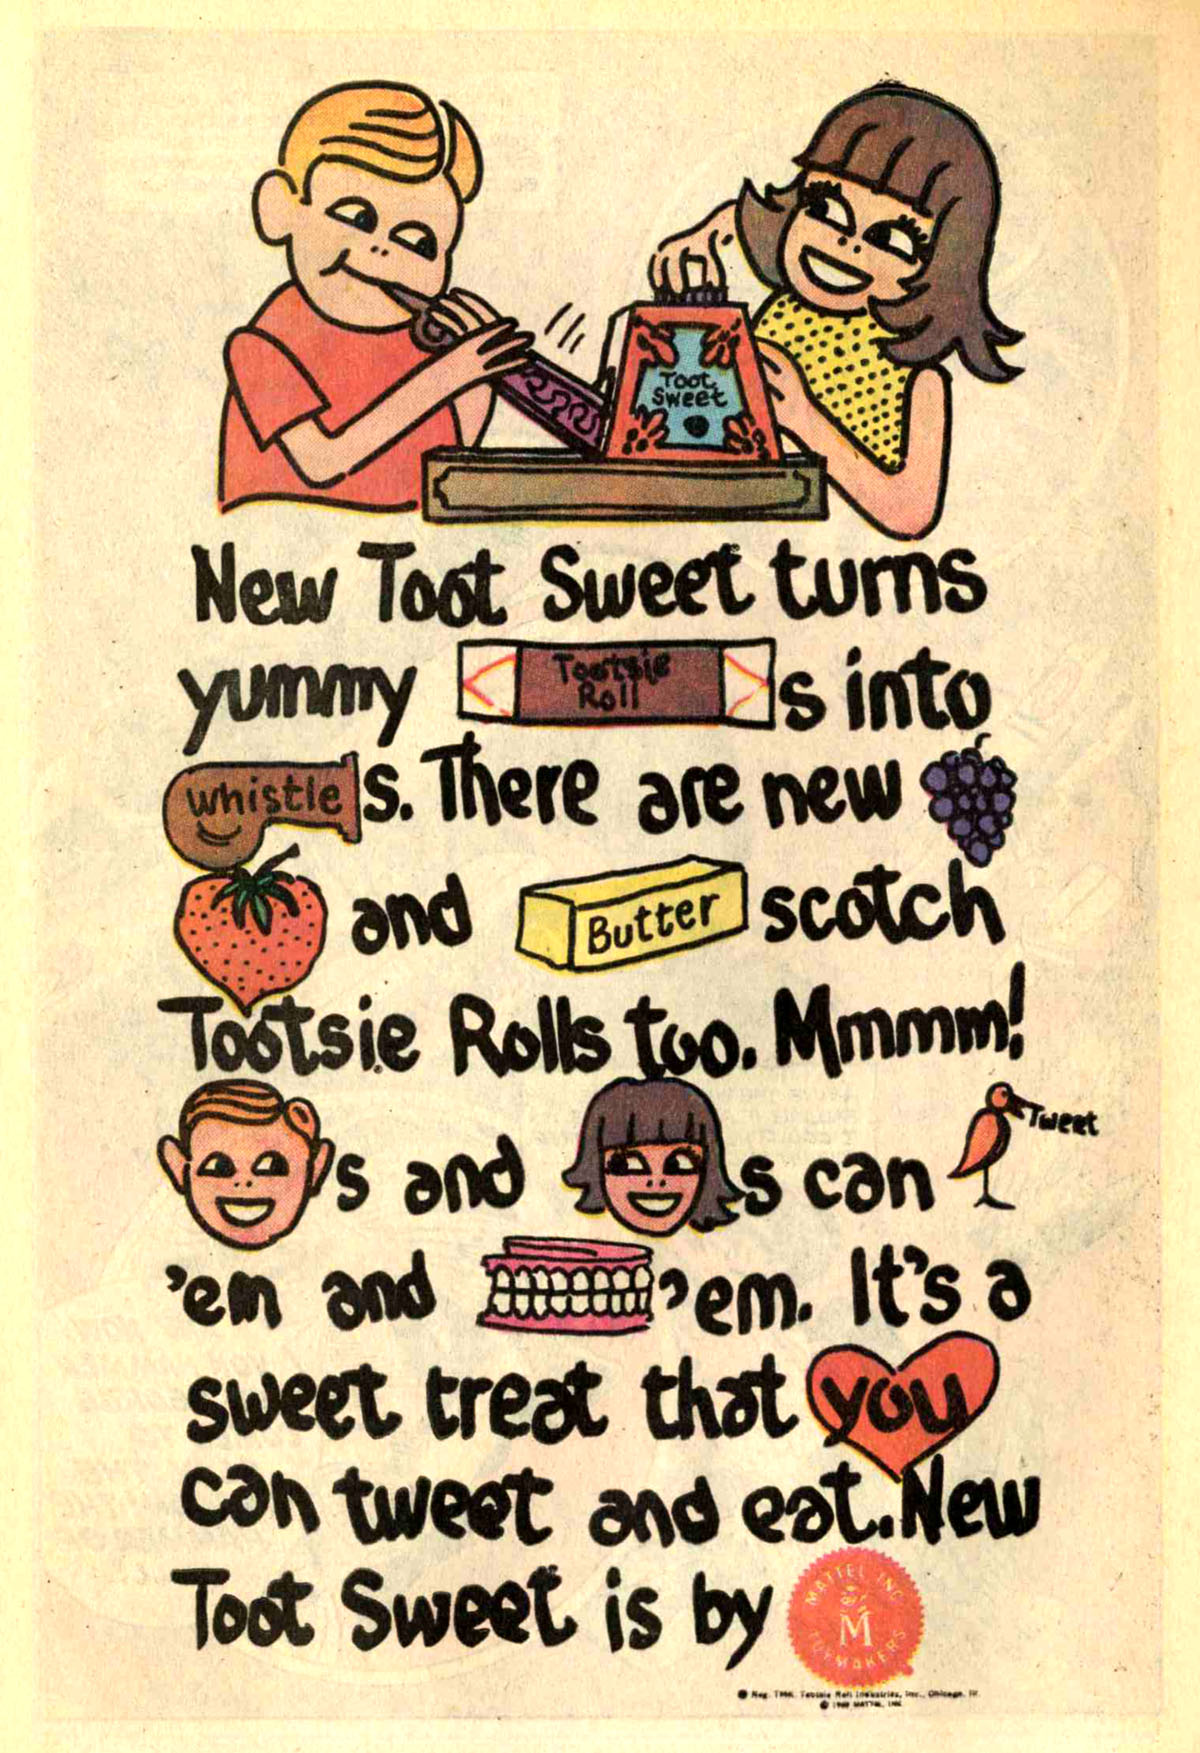 Toot
Sweet
New Toot Sweet turns
yummy Tootsie Roll s into
whistle s. There are new
and Butter scotch
Tootsie Rolls too. Mmmm!
s and s can Tweet
'em and 'em. It's a
sweet treat that you
can tweet and eat. New
Toot Sweet is by
MATTEL INC
M
TOYMAKERS
Tootsie Roll Industries, Inc., Chicago, Ill.
MATTEL, INC.